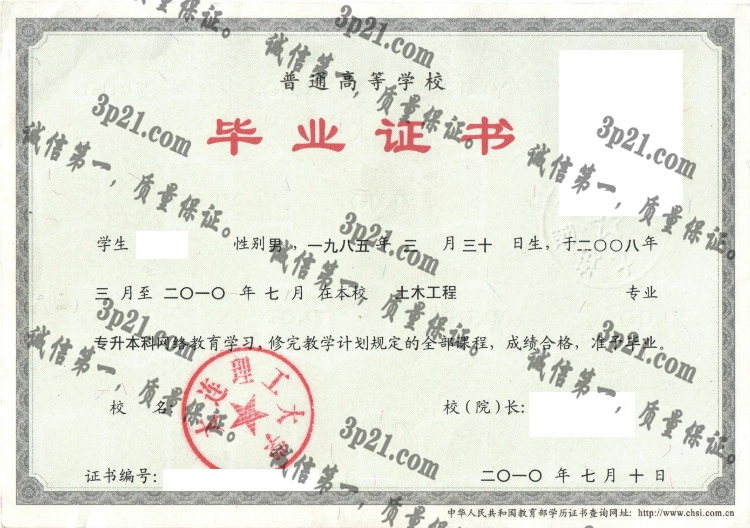 普通高等学校
毕业证书
学生 性别男，一九八五年 三 月 三十 日生，于二〇〇八年
三 月至 二〇一〇 年 七 月 在本校 土木工程 专业
专升本科网络教育学习，修完教学计划规定的全部课程，成绩合格，准予毕业。
校 名： 校（院）长：
大连理工大学
证书编号： 二〇一〇 年 七 月 十 日
中华人民共和国教育部学历证书查询网址：http://www.chsi.com.cn
3p21.com
诚信第一，质量保证。
3p21.com
诚信第一，质量保证。
3p21.com
诚信第一，质量保证。
3p21.com
诚信第一，质量保证。
3p21.com
诚信第一，质量保证。
3p21.com
诚信第一，质量保证。
3p21.com
诚信第一，质量保证。
3p21.com
诚信第一，质量保证。